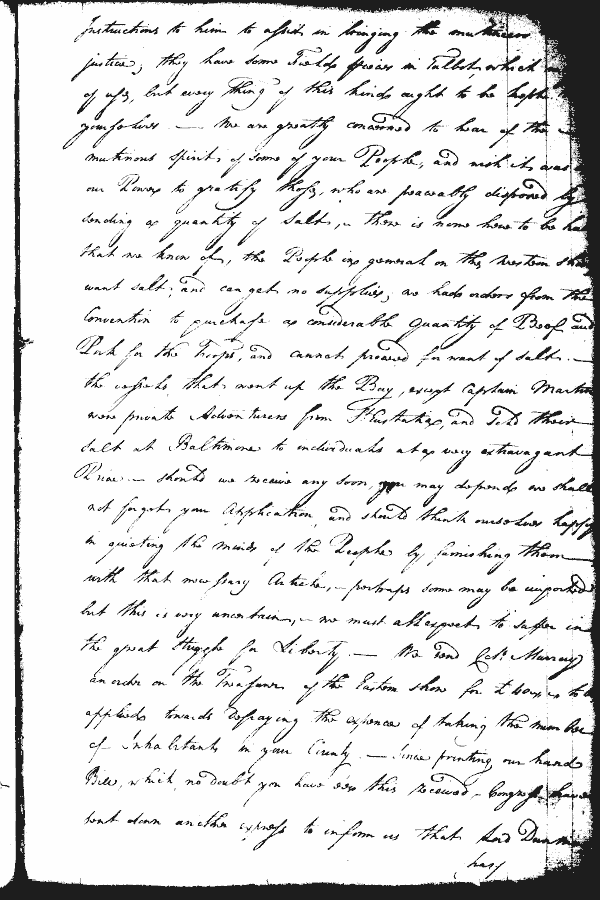 Instructions to him to assist in bringing the mutineers
justice; they have some Field pieces in Talbot, which
of use, but every thing of this kind ought to be kept
yourselves. — We are greatly concerned to hear of the
mutinous spirit of some of your People, and wish it was
our Power to gratify those, who are peaceably disposed by
sending a quantity of Salt, — there is none here to be ha
that we know of, the People in general on the Western sho
want salt; and can get no supplies; we had orders from the
Convention to purchase a considerable Quantity of Beef and
Pork for the Troops, and cannot proceed for want of salt. —
the vessels that went up the Bay, except Captain Martin
were private Adventurers from St. Eustatia, and sold their
salt at Baltimore to individuals at a very extravagant
Price — should we receive any soon, you may depend we shall
not forget your Application, and should think ourselves happy
in quieting the minds of the People by furnishing them
with that necessary Article, — perhaps some may be imported
but this is very uncertain, — we must all expect to suffer in
the great Struggle for Liberty. — We send Col. Murray
an order on the Treasurer of the Eastern shore for £ to be
applied towards defraying the expence of taking the number
of Inhabitants in your County. — Since printing our hand
Bill, which no doubt you have ere this received, Congress have
sent down another express to inform us that Lord Dunm
has